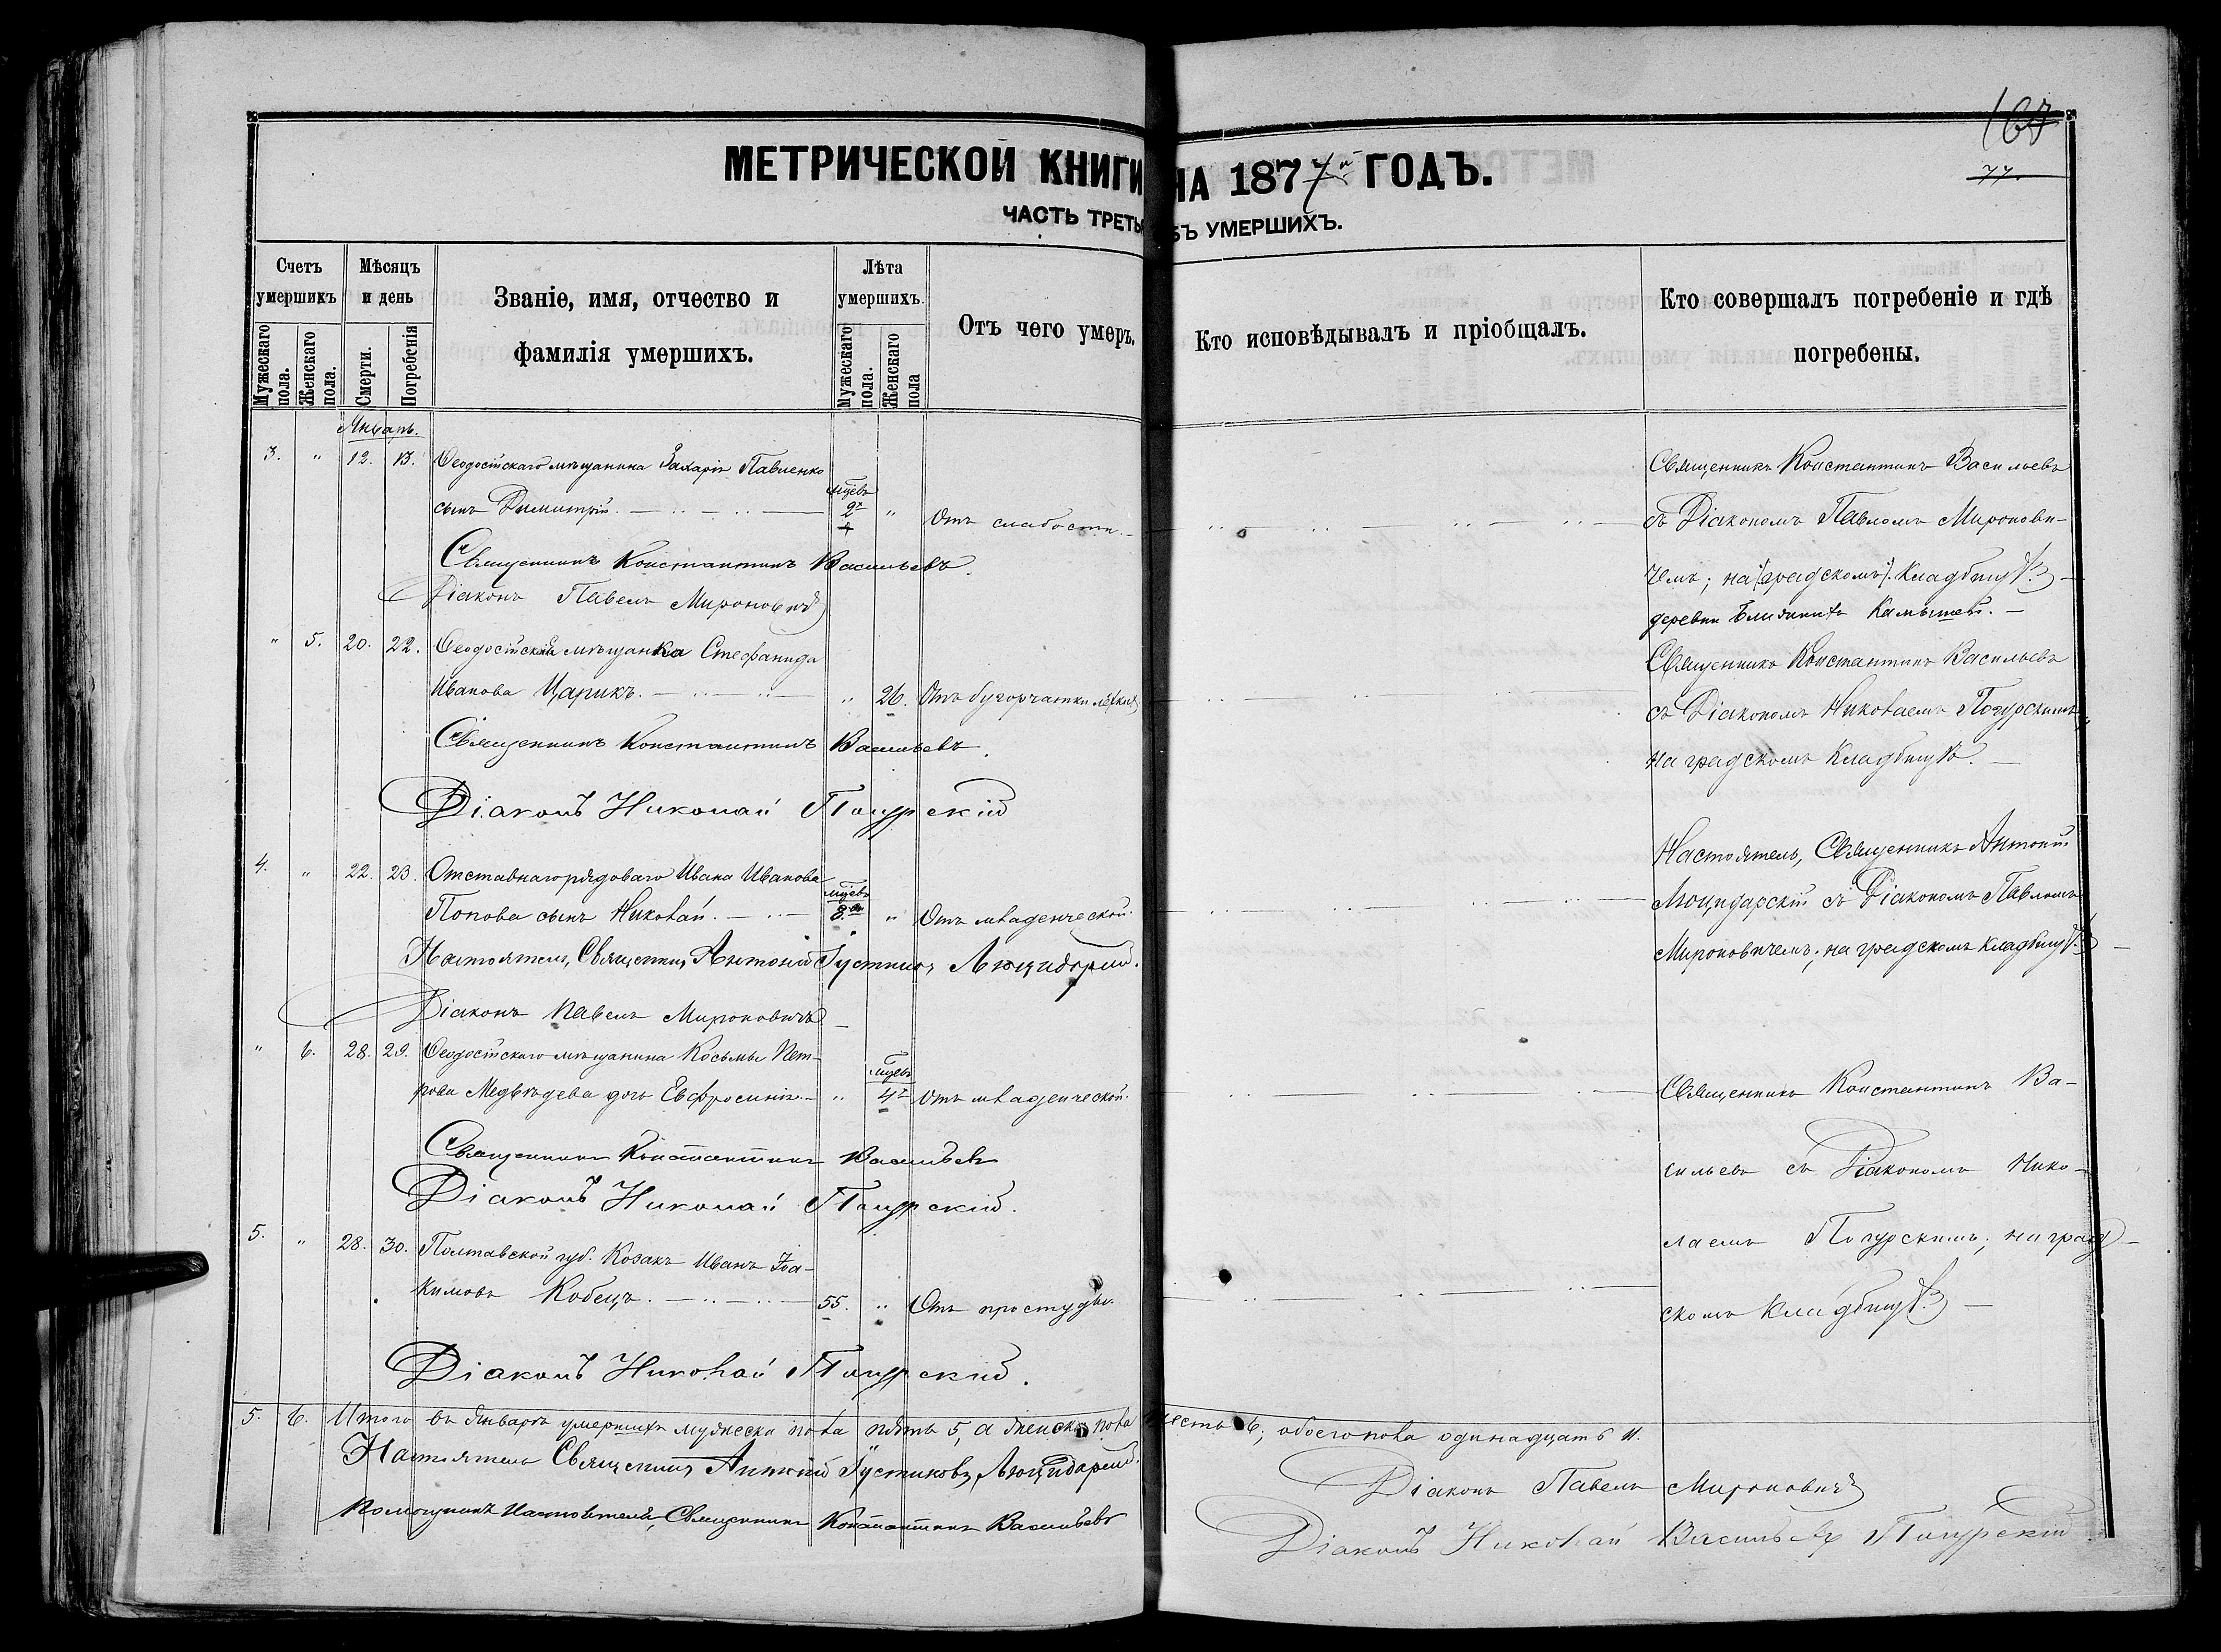 167
77.
МЕТРИЧЕСКОЙ КНИГИ НА 1877й ГОДЪ.
ЧАСТЬ ТРЕТЬ ОБЪ УМЕРШИХЪ.
Счетъ умершихъ
Мѣсяцъ и день
Званіе, имя, отчество и фамилія умершихъ.
Лѣта умершихъ.
Отъ чего умеръ.
Кто исповѣдывалъ и пріобщалъ.
Кто совершалъ погребеніе и гдѣ погребены.
Мужескаго пола.
Женскаго пола.
Смерти.
Погребенія
Мужескаго пола.
Женскаго пола
Январь.
3. " 12. 13. Ѳеодосійскаго мѣщанина Захарія Павленко
сынъ Димитрій. мцевъ 2х " Отъ слабости.
Священникъ Константинъ Васильевъ
съ Діакономъ Павломъ Миронови-
чемъ; на (градскомъ). Кладбищѣ
деревни Ближнихъ Камышей.
Священникъ Константинъ Васильевъ.
Діаконъ Павелъ Мироновичъ
" 5. 20. 22. Ѳеодосійская мѣщанка Стефанида
Иванова Царикъ. " 26. Отъ бугорчатки легкихъ
Священникъ Константинъ Васильевъ
съ Діакономъ Николаемъ Погурскимъ;
на градскомъ Кладбищѣ.
Священникъ Константинъ Васильевъ.
Діаконъ Николай Погурскій
4. " 22. 23. Отставнаго рядоваго Ивана Иванова
Попова сынъ Николай. мцевъ 8. " Отъ младенческой.
Настоятель, Священникъ Антоній
Люцидарскій съ Діакономъ Павломъ
Мироновичемъ; на градскомъ кладбищѣ
Настоятель, Священникъ Антоній Люцидарскій.
Діаконъ Павелъ Мироновичъ
" 6. 28. 29. Ѳеодосійскаго мѣщанина Косьмы Пет-
рова Медвѣдева дочь Евфросинія. " мцевъ 4х Отъ младенческой.
Священникъ Константинъ Ва-
сильевъ съ Діакономъ Нико-
лаемъ Погурскимъ; на град-
скомъ Кладбищѣ
Священникъ Константинъ Васильевъ
Діаконъ Николай Погурскій.
5. " 28. 30. Полтавской губ. Козакъ Иванъ Іоа-
кимовъ Кобецъ. 55. " Отъ простуды.
Діаконъ Николай Погурскій.
5. 6. Итого въ Январѣ умершихъ мужеска пола пять 5, а женска пола шесть 6; обоего пола одинадцать 11.
Настоятель Священникъ Антоній Люцидарскій.
Діаконъ Павелъ Мироновичъ
Помощникъ Настоятеля, Священникъ Константинъ Васильевъ
Діаконъ Николай Васильевъ Погурскій